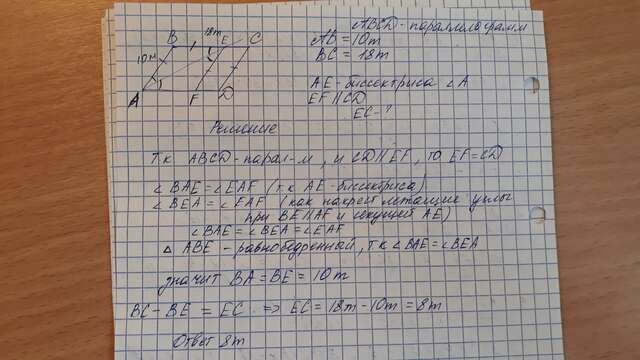 ABCD - параллелограмм
AB = 10m
BC = 18m
AE - биссектриса ∠A
EF || CD
EC - ?
B 18m E C
10m
A F D
Решение
Т.к ABCD - парал-м, и CD || EF, то EF = CD
∠BAE = ∠EAF (т к AE - биссектриса)
∠BEA = ∠EAF (как накрест лежащие углы
при BE || AF и секущей AE)
∠BAE = ∠BEA = ∠EAF
△ ABE - равнобедренный, т к ∠BAE = ∠BEA
значит BA = BE = 10m
BC - BE = EC => EC = 18m - 10m = 8m
Ответ 8m